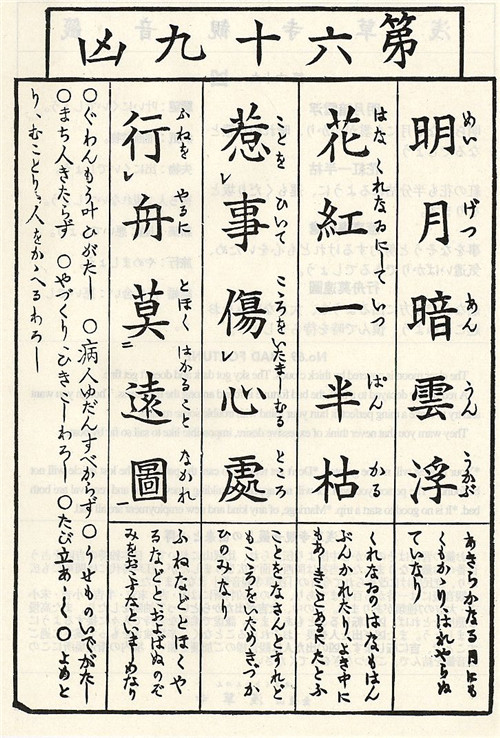 第六十九凶
めい げつ あん うん うかぶ
明月暗雲浮
あきらかなる月にも
くもかゝりはれやらぬ
ていなり
はな くれなゐにしていつ ぱん かる
花紅一半枯
くれなゐのはなもはん
ぶんかれたりよき中に
もあしきことあるたとふ
ことを ひいて こころをいたましむる ところ
惹レ事傷レ心處
ことをなさんとすれど
もこころをいためきづか
ふねを やるに とほく はかること なかれ
行レ舟莫二遠圖一
ふねなどにとほくや
るなどとおよばぬのぞ
みをおこすなといましめなり
○ぐわんもう叶ひがたし ○病人ゆだんすべからず ○うせものいでがたし
○まち人きたらず ○やづくりひきこしわろし ○たび立あしく ○よめと
り、むことり、人をかゝへるわろし